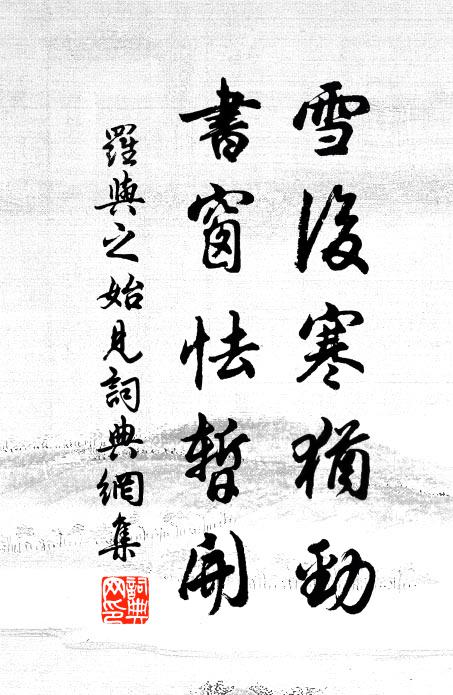 雪後寒猶勁
書窗怯暫開
羅與之始見詞典網集
詞典網印